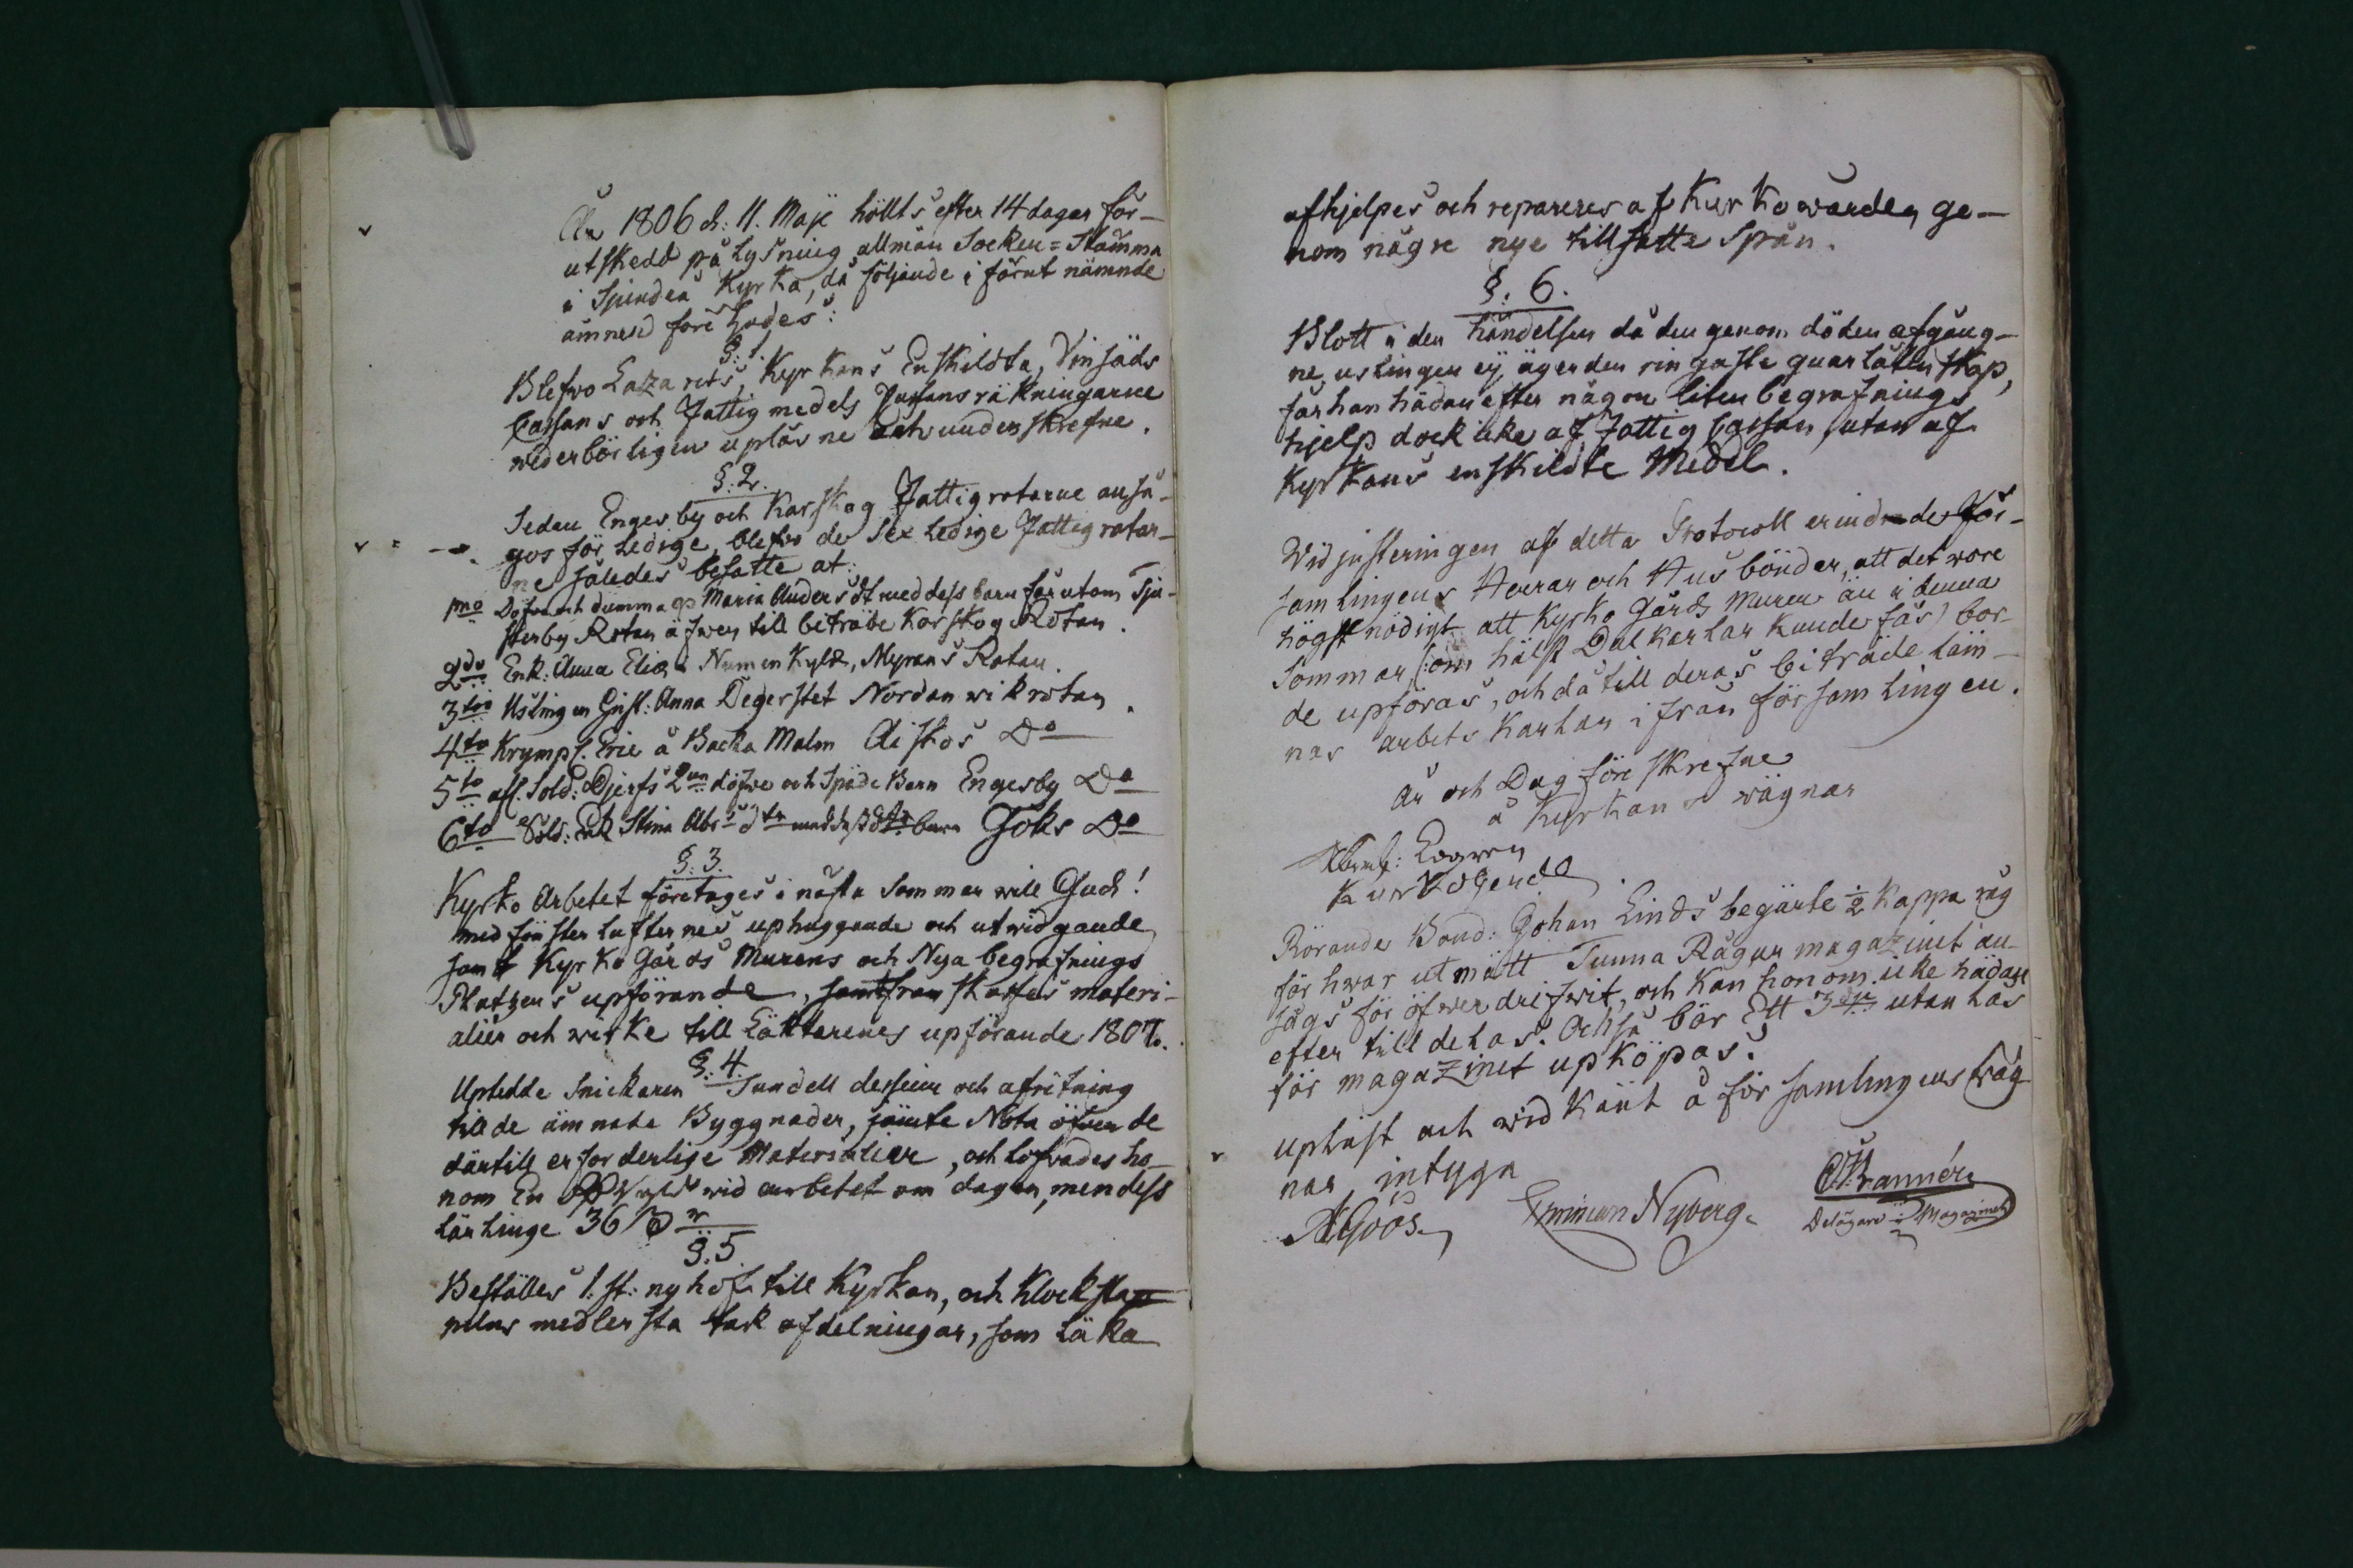 År 1806 d: 11. Maji hölts efter 14 dagar för-
utskedd pålysning allmän Socken=Stämma
i Kyrka, då följande i förut nämnde
ämnen förehades:
§: 1.
Blefwo Lazarets, Kyrkans Enskildta, Vinsäds
Cassans och Fattigmedels Cassans räkningarne
wederbörligen upläsne och underskrefne.
§: 2.
Sedan Engesby och Karskog Fattigrotarne anså-
gos för Ledige, blefwo de Sex Ledige Fattigrotar-
ne således besatte at:
1mo Döfwa och dumma Maria Anders dt med dess barn förutom Tju-
sterby Rotan äfwen till biträde Karskog Rotan.
2do Enk: Anna i Myrans Rotan.
3tio Uslingen Gust: Anna Degerstet Nordanwik rotan.
4to Krympl. Eric å Backa Malm Aiskos Do
5to afl. Sold: Djerfs 2ne döfwe och Späde Barn Engesby Do
6to Sold: Enk Stina Abrs dtr med dess barn Göks Do
§: 3.
Kyrko Arbetet företages i nästa Sommar will Gud!
med fönster lufternes uphuggande och utwidgande
samt Kyrko Gårds Murens och Nya begrafnings
Platzens upförande, samt framskaffas materi-
alier och wirke till Läktarenes upförande 1807.
§: 4.
Uptedde Snickaren Sundell desseine och afritning
till de ämnade Byggnader, jämte Nota öfwer de
därtill erforderlige Materialier, och lofwades ho-
nom En wid arbetet om dagen, men dess
lärlinge 36
§: 5.
Beställes 1. st: ny håf till Kyrkan, och Klockstap-
pelns medlersta tak afdelningar, som läka
afhjelpes och repareres af Kyrkowärden ge-
nom någre nye tillsatte Spån.
§: 6.
Blott i den händelsen då den genom döden afgång-
ne uslingen ej äger den ringaste quarlåtenskap,
får han hädanefter någon liten begrafnings
hjelp dock icke af Fattig Cassan, utan af
Kyrkans enskildte Medel.
Wid justeringen af detta Protocoll erindrade För-
samlingens Herrar och Husbönder, att det wore
högst nödigt att Kyrko Gårds Muren än i denna
Sommar, (:om hälst Dalkarlar kunde fås) bor-
de upföras, och då till deras biträde läm-
nas arbets Karlar ifrån församlingen.
År och Dag föreskrefne
å Kyrkans wägnar
Abrah: Legren
Kyrkoherde
Rörande Bond: Johan Linds begärte ½ Kappa råg
för hwar utmätt Tunna Råg ur magazinet an-
sågs för öfwerdrifwit, och kan honom icke hädan
efter tilldelas. Också bör Ett utan lås
för magazinet upköpas.
Upläst och widkänt å församlingens wäg-
nar intyga
A Göös Nyberg
Delägare i Magazinet